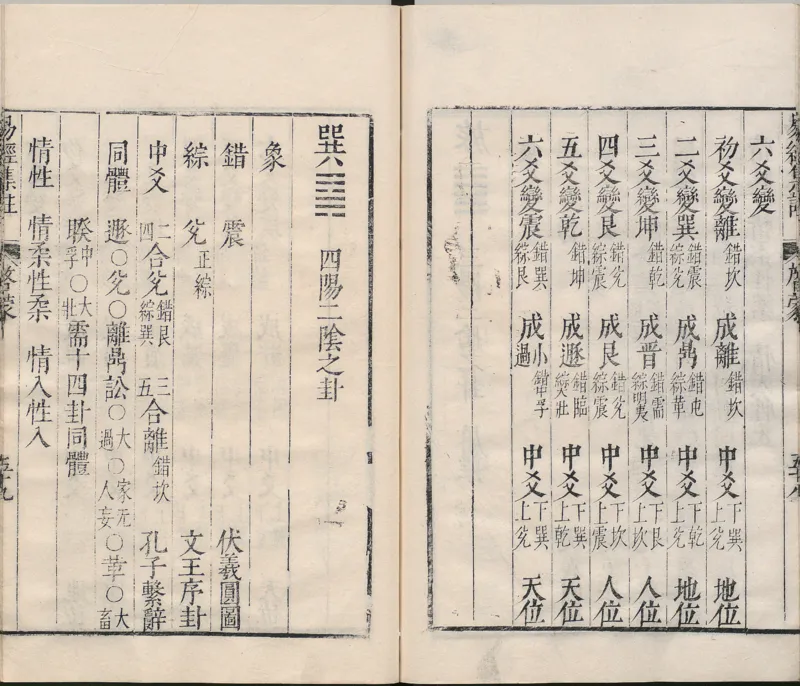 六爻變
初爻變離 錯坎 成離 錯坎 中爻 下巽上兌 地位
二爻變巽 錯震綜兌 成鼎 錯屯綜革 中爻 下乾上兌 地位
三爻變坤 錯乾 成晉 錯需綜明夷 中爻 下艮上坎 人位
四爻變艮 錯兌綜震 成艮 錯兌綜震 中爻 下坎上震 人位
五爻變乾 錯坤 成遯 錯臨綜大壯 中爻 下巽上乾 天位
六爻變震 錯巽綜艮 成小過 錯中孚 中爻 下巽上兌 天位
巽䷸ 四陽二陰之卦
象
錯 震 伏羲圓圖
綜 兌 正綜 文王序卦
中爻 二四合兌 錯艮綜巽 三五合離 錯坎 孔子繫辭
同體 遯○兌○離鼎訟○大過○家人无妄○革○大畜
睽中孚○大壯需十四卦同體
情性 情柔性柔 情入性入
易經集註 啓蒙 五十九